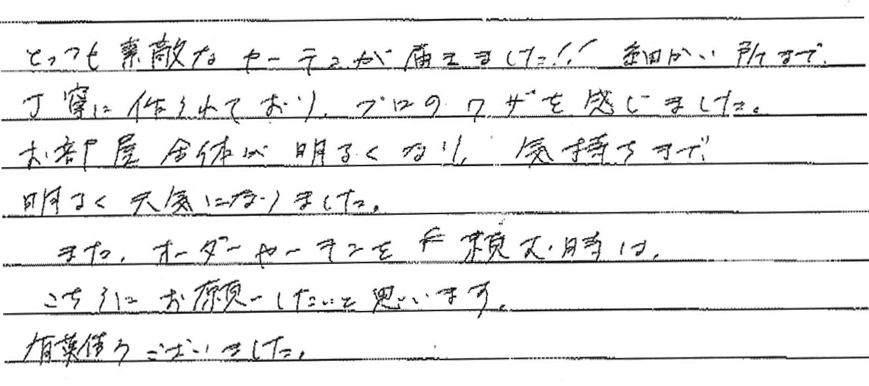 とっても素敵なカーテンが届きました!! 細かい所まで
丁寧に作られており、プロのワザを感じました。
お部屋全体が明るくなり、気持ちまで
明るく元気になりました。
また、オーダーカーテンを 頼む時は、
こちらにお願いしたいと思います。
有難う ございました。